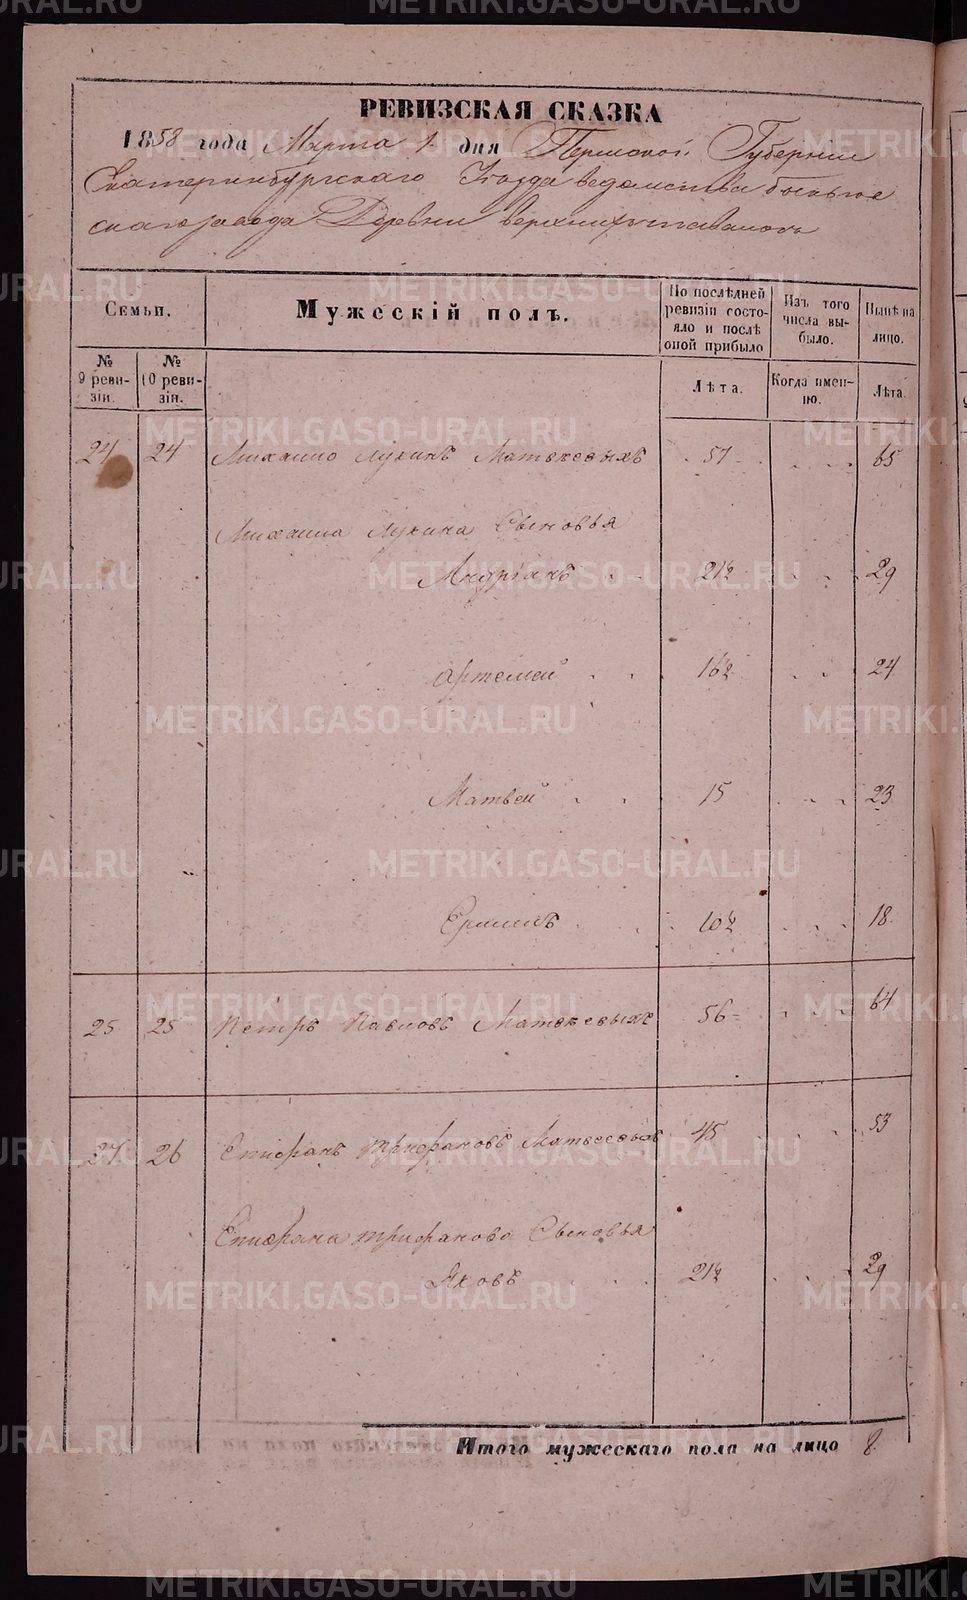 РЕВИЗСКАЯ СКАЗКА
1858 года Марта 1 дня Пермской Губернии
Екатеринбургскаго Уезда ведомства
скаго завода Деревни
Семьи.
Мужескій полъ.
По послѣдней ревизіи состояло и послѣ оной прибыло
Изъ того числа выбыло.
Нынѣ на лицо.
№ 9 ревизіи.
№ 10 ревизіи.
Лѣта.
Когда именно.
Лѣта.
24 24 Михаило Лукинъ Матвеевыхъ 57 65
Михаила Лукина Сыновья
Андріанъ 21½ 29
Артемей 16½ 24
Матвей 15 23
Ермилъ 10½ 18
25 25 Петръ Павловъ Матвеевыхъ 56 64
27 26 Епифанъ Трифановъ Матвеевыхъ 45 53
Епифана Трифанова Сыновья
Яковъ 21½ 29
Итого мужескаго пола на лицо 8
METRIKI.GASO-URAL.RU